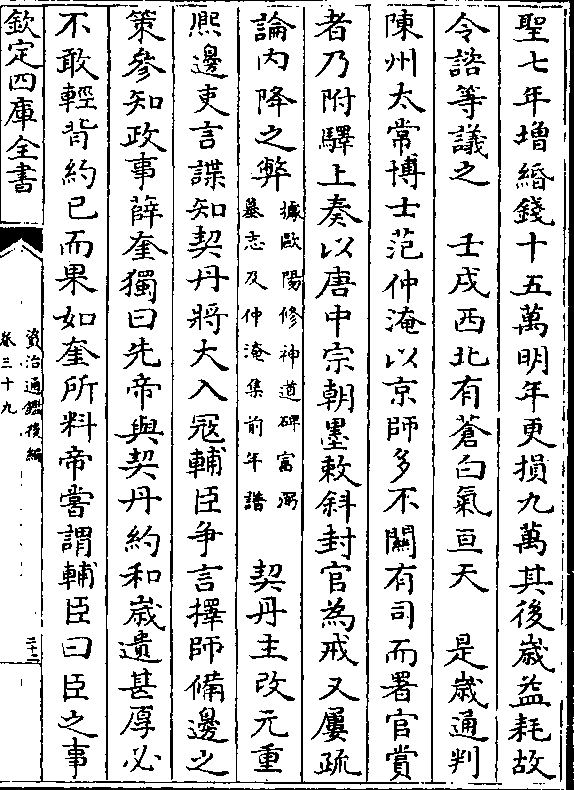 聖七年増緡錢十五萬明年更損九萬其後歲益耗故
令諮等議之　壬戌西北有蒼白氣亘天　是歲通判
陳州太常博士范仲淹以京師多不關有司而署官賞
者乃附驛上奏以唐中宗朝墨敕斜封官為戒又屢疏
論内降之弊據歐陽修神道碑富弼
墓志及仲淹集前年譜　契丹主改元重
熈邊吏言諜知契丹將大入冦輔臣争言擇師備邊之
策參知政事薛奎獨曰先帝與契丹約和歲遺甚厚必
不敢輕背約已而果如奎所料帝嘗謂輔臣曰臣之事
欽定四庫全書
資治通鑑後編
卷三十九
二十二